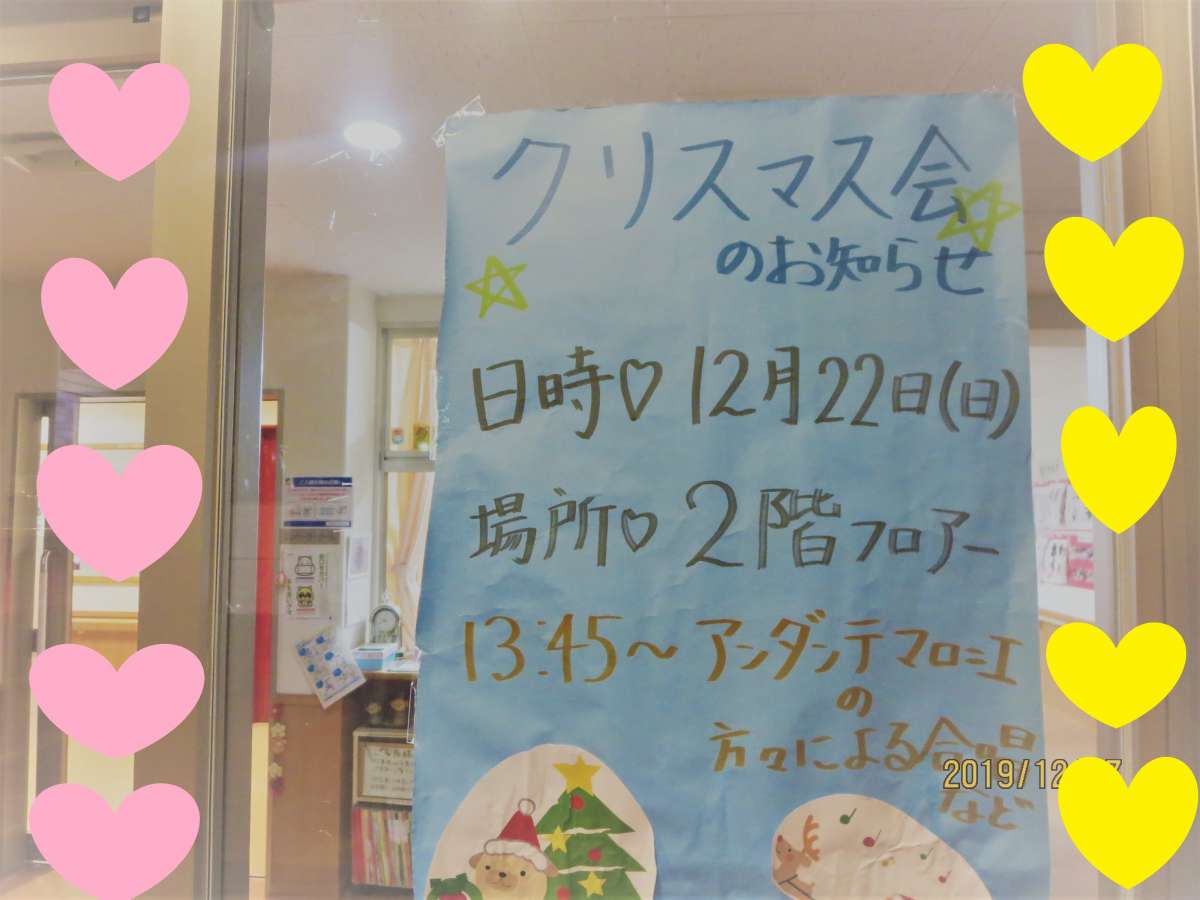 クリスマス会
のお知らせ
日時♡ 12月22日(日)
場所♡ 2階フロアー
13:45〜 アンダンテマロニエ
の
方々による合唱
など
2019/12